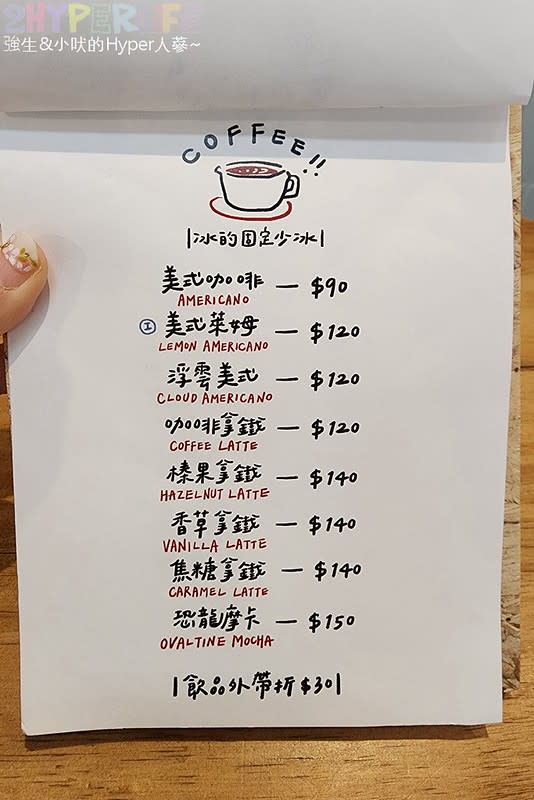 2HYPERLIFE
強生&小吠的Hyper人蔘~
COFFEE!!
|冰的固定少冰|
美式咖啡 — $90
AMERICANO
Ⓘ 美式萊姆 — $120
LEMON AMERICANO
浮雲美式 — $120
CLOUD AMERICANO
咖啡拿鐵 — $120
COFFEE LATTE
榛果拿鐵 — $140
HAZELNUT LATTE
香草拿鐵 — $140
VANILLA LATTE
焦糖拿鐵 — $140
CARAMEL LATTE
恐龍摩卡 — $150
OVALTINE MOCHA
|飲品外帶折$30|